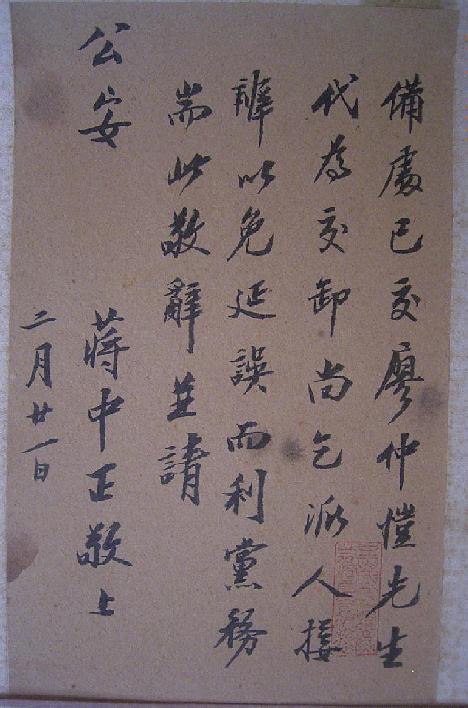 備處已交廖仲愷先生
代為交卸尚乞派人接
辦以免延誤而利黨務
耑此敬辭並請
公安
蔣中正敬上
二月廿一日